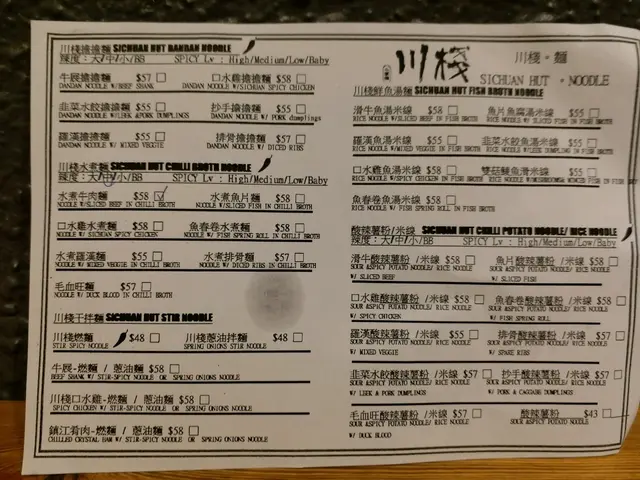 川棧擔擔麵 SICHUAN HUT DANDAN NOODLE
辣度：大/中/小/BB SPICY Lv : High/Medium/Low/Baby
牛展擔擔麵 $57
DANDAN NOODLE W/BEEF SHANK
口水雞擔擔麵 $58
DANDAN NOODLE W/SICHUAN SPICY CHICKEN
韭菜水餃擔擔麵 $55
DANDAN NOODLE W/LEEK &PORK DUMPLINGS
抄手擔擔麵 $55
DANDAN NOODLE W/ PORK dumplings
羅漢擔擔麵 $55
DANDAN NOODLE W/ MIXED VEGGIE
排骨擔擔麵 $57
DANDAN NOODLE W/ DICED RIBS
川棧水煮麵 SICHUAN HUT CHILLI BROTH NOODLE
辣度：大/中/小/BB SPICY Lv : High/Medium/Low/Baby
水煮牛肉麵 $58
NOODLE W/SLICED BEEF IN CHILLI BROTH
水煮魚片麵 $58
NOODLE W/SLICED FISH IN CHILLI BROTH
口水雞水煮麵 $58
NOODLE W/ SICHUAN SPICY CHICKEN
魚春卷水煮麵 $58
NOODLE W/ FISH SPRING ROLL IN CHILLI BROTH
水煮羅漢麵 $55
NOODLE W/ MIXED VEGGIE IN CHILLI BROTH
水煮排骨麵 $57
NOODLE W/ DICED RIBS IN CHILLI BROTH
毛血旺麵 $57
NOODLE W/ DUCK BLOOD IN CHILLI BROTH
川棧干拌麵 SICHUAN HUT STIR NOODLE
川棧燃麵 $48
STIR SPICY NOODLE
川棧蔥油拌麵 $48
SPRING ONIONS STIR NOODLE
牛展-燃麵 / 蔥油麵 $58
BEEF SHANK W/ STIR-SPICY NOODLE OR SPRING ONIONS NOODLE
川棧口水雞-燃麵 / 蔥油麵 $58
SPICY CHICKEN W/ STIR-SPICY NOODLE OR SPRING ONIONS NOODLE
鎮江肴肉-燃麵 / 蔥油麵 $58
CHILLED CRYSTAL HAM W/ STIR-SPICY NOODLE OR SPRING ONIONS NOODLE
川棧
川棧・麵
SICHUAN HUT・NOODLE
川棧鮮魚湯麵 SICHUAN HUT FISH BROTH NOODLE
滑牛魚湯米線 $58
RICE NOODLE W/SLICED BEEF IN FISH BROTH
魚片魚腐湯米線 $55
RICE NOODLE W/ SLICED FISH IN FISH BROTH
羅漢魚湯米線 $55
RICE NOODLE W/MIXED VEGGIE IN FISH BROTH
韭菜水餃魚湯米線 $55
RICE NOODLE W/LEEK DUMPLING IN FISH BROTH
口水雞魚湯米線 $58
RICE NOODLE W/SPICY CHICKEN IN FISH BROTH
雙菇鯪魚滑米線 $55
RICE NOODLE W/MUSHROOM&M MINCED FISH IN FISH
魚春卷魚湯米線 $58
RICE NOODLE W/ FISH SPRING ROLL IN FISH BROTH
酸辣薯粉/米線 SICHUAN HUT CHILLI POTATO NOODLE/ RICE NOODLE
辣度：大/中/小/BB SPICY Lv : High/Medium/Low/Baby
滑牛酸辣薯粉 /米線 $58
SOUR &SPICY POTATO NOODLE/ RICE NOODLE
W/ SLICED BEEF
魚片酸辣薯粉 /米線 $58
SOUR &SPICY POTATO NOODLE/ RICE NOODLE
W/ SLICED FISH
口水雞酸辣薯粉 /米線 $58
SOUR &SPICY POTATO NOODLE/ RICE NOODLE
W/ SPICY CHICKEN
魚春卷酸辣薯粉 /米線 $58
SOUR &SPICY POTATO NOODLE/ RICE NOODLE
W/ FISH SPRING ROLL
羅漢酸辣薯粉 /米線 $55
SOUR &SPICY POTATO NOODLE/ RICE NOODLE
W/ MIXED VEGGIE
排骨酸辣薯粉 /米線 $57
SOUR &SPICY POTATO NOODLE/ RICE NOODLE
W/ SPARE RIBS
韭菜水餃酸辣薯粉 /米線 $57
SOUR &SPICY POTATO NOODLE/ RICE NOODLE
W/ LEEK & PORK DUMPLINGS
抄手酸辣薯粉 /米線 $57
SOUR &SPICY POTATO NOODLE/ RICE NOODLE
W/ PORK & CAGGABE DUMPLINGS
毛血旺酸辣薯粉 /米線 $57
SOUR &SPICY POTATO NOODLE/ RICE NOODLE
W/ DUCK BLOOD
酸辣薯粉 $43
SOUR &SPICY POTATO NOODLE